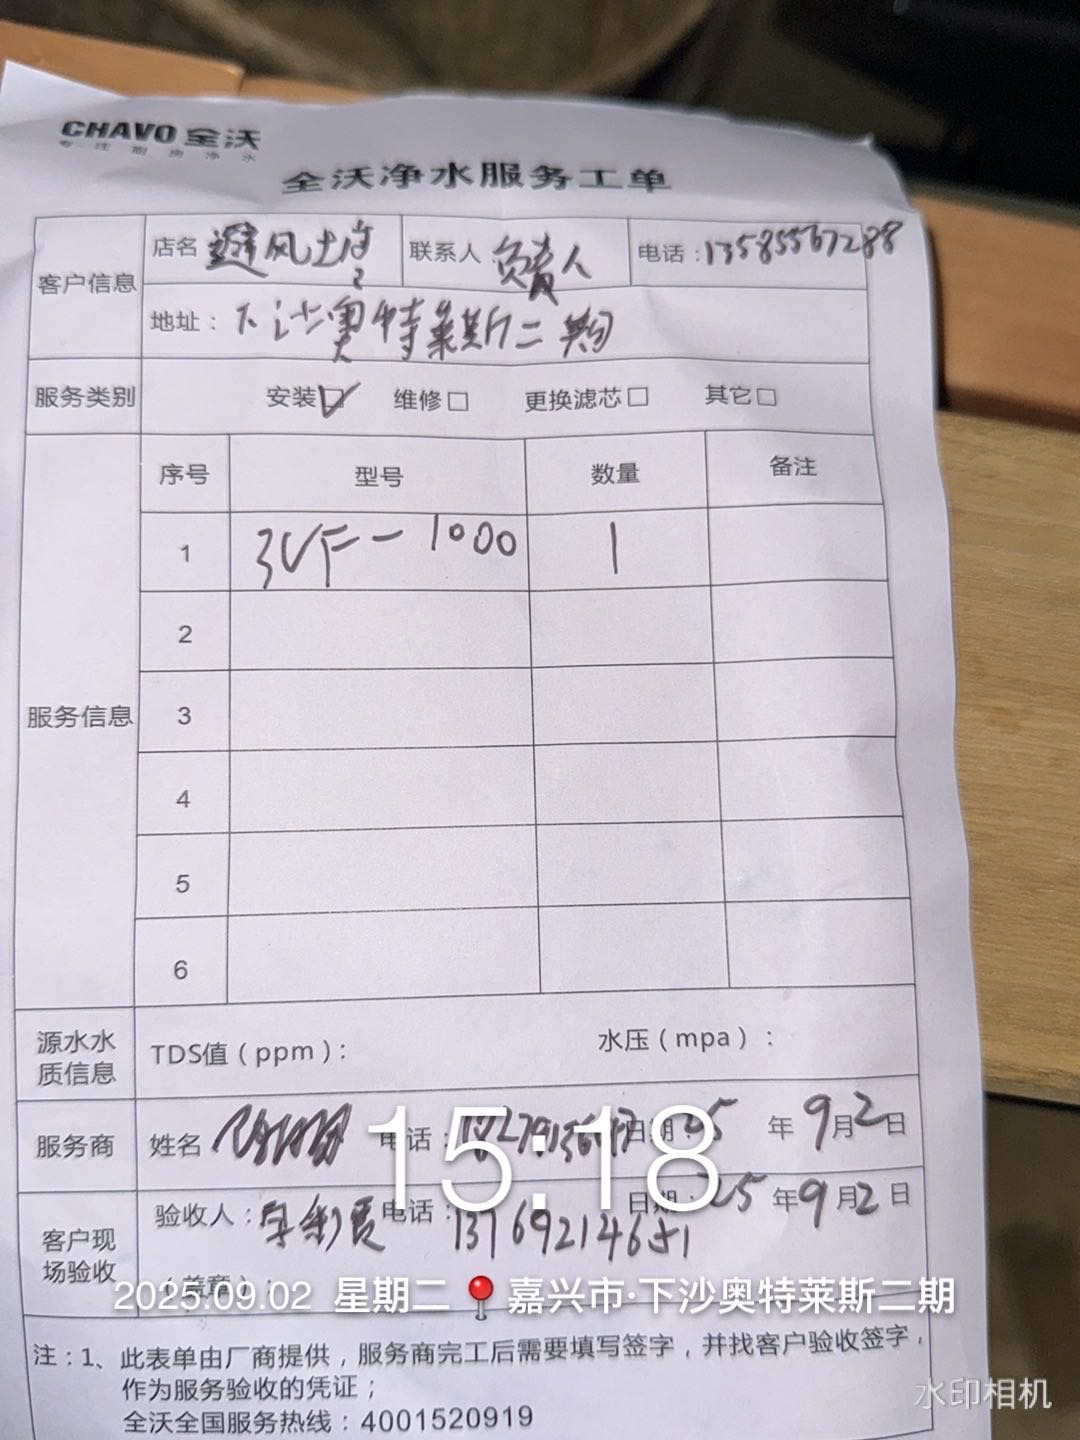 CHAVO 全沃
专注厨房净水
全沃净水服务工单
客户信息 店名 避风塘 联系人 负责人 电话：13585567288
地址：下沙奥特莱斯二期
服务类别 安装☑ 维修□ 更换滤芯□ 其它□
服务信息 序号 型号 数量 备注
1 3UF-1000 1
2
3
4
5
6
源水水质信息 TDS值（ppm）： 水压（mpa）：
服务商 姓名 电话： 日期：25年9月2日
客户现场验收 验收人： 电话： 日期：25年9月2日
（盖章）：
15:18
2025.09.02 星期二 嘉兴市·下沙奥特莱斯二期
注：1、此表单由厂商提供，服务商完工后需要填写签字，并找客户验收签字，
作为服务验收的凭证；
全沃全国服务热线：4001520919
水印相机